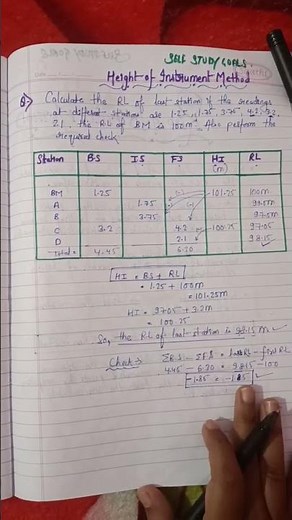 SELF STUDY/GOALS
Height of Instrument Method
Calculate the RL of last station if the readings
at different stations are 1.25, 1.75, 3.75, 4.2, 3.2,
2.1, the RL of BM is 100m. Also perform the
required check.
Station BS IS FS HI (m) RL
BM 1.25 101.25 100m
A 1.75
B 3.75 97.5m
C 3.2 4.2 100.25 97.05
D 2.1 98.15
Total = 4.45 6.30
HI = BS + RL
= 1.25 + 100m
= 101.25m
HI = 97.05 + 3.2m
= 100.25
So, the RL of last station is 98.15 m
Check :
ΣB.S - ΣF.S = last RL - first RL
4.45 - 6.30 = 98.15 - 100
-1.85 = -1.85